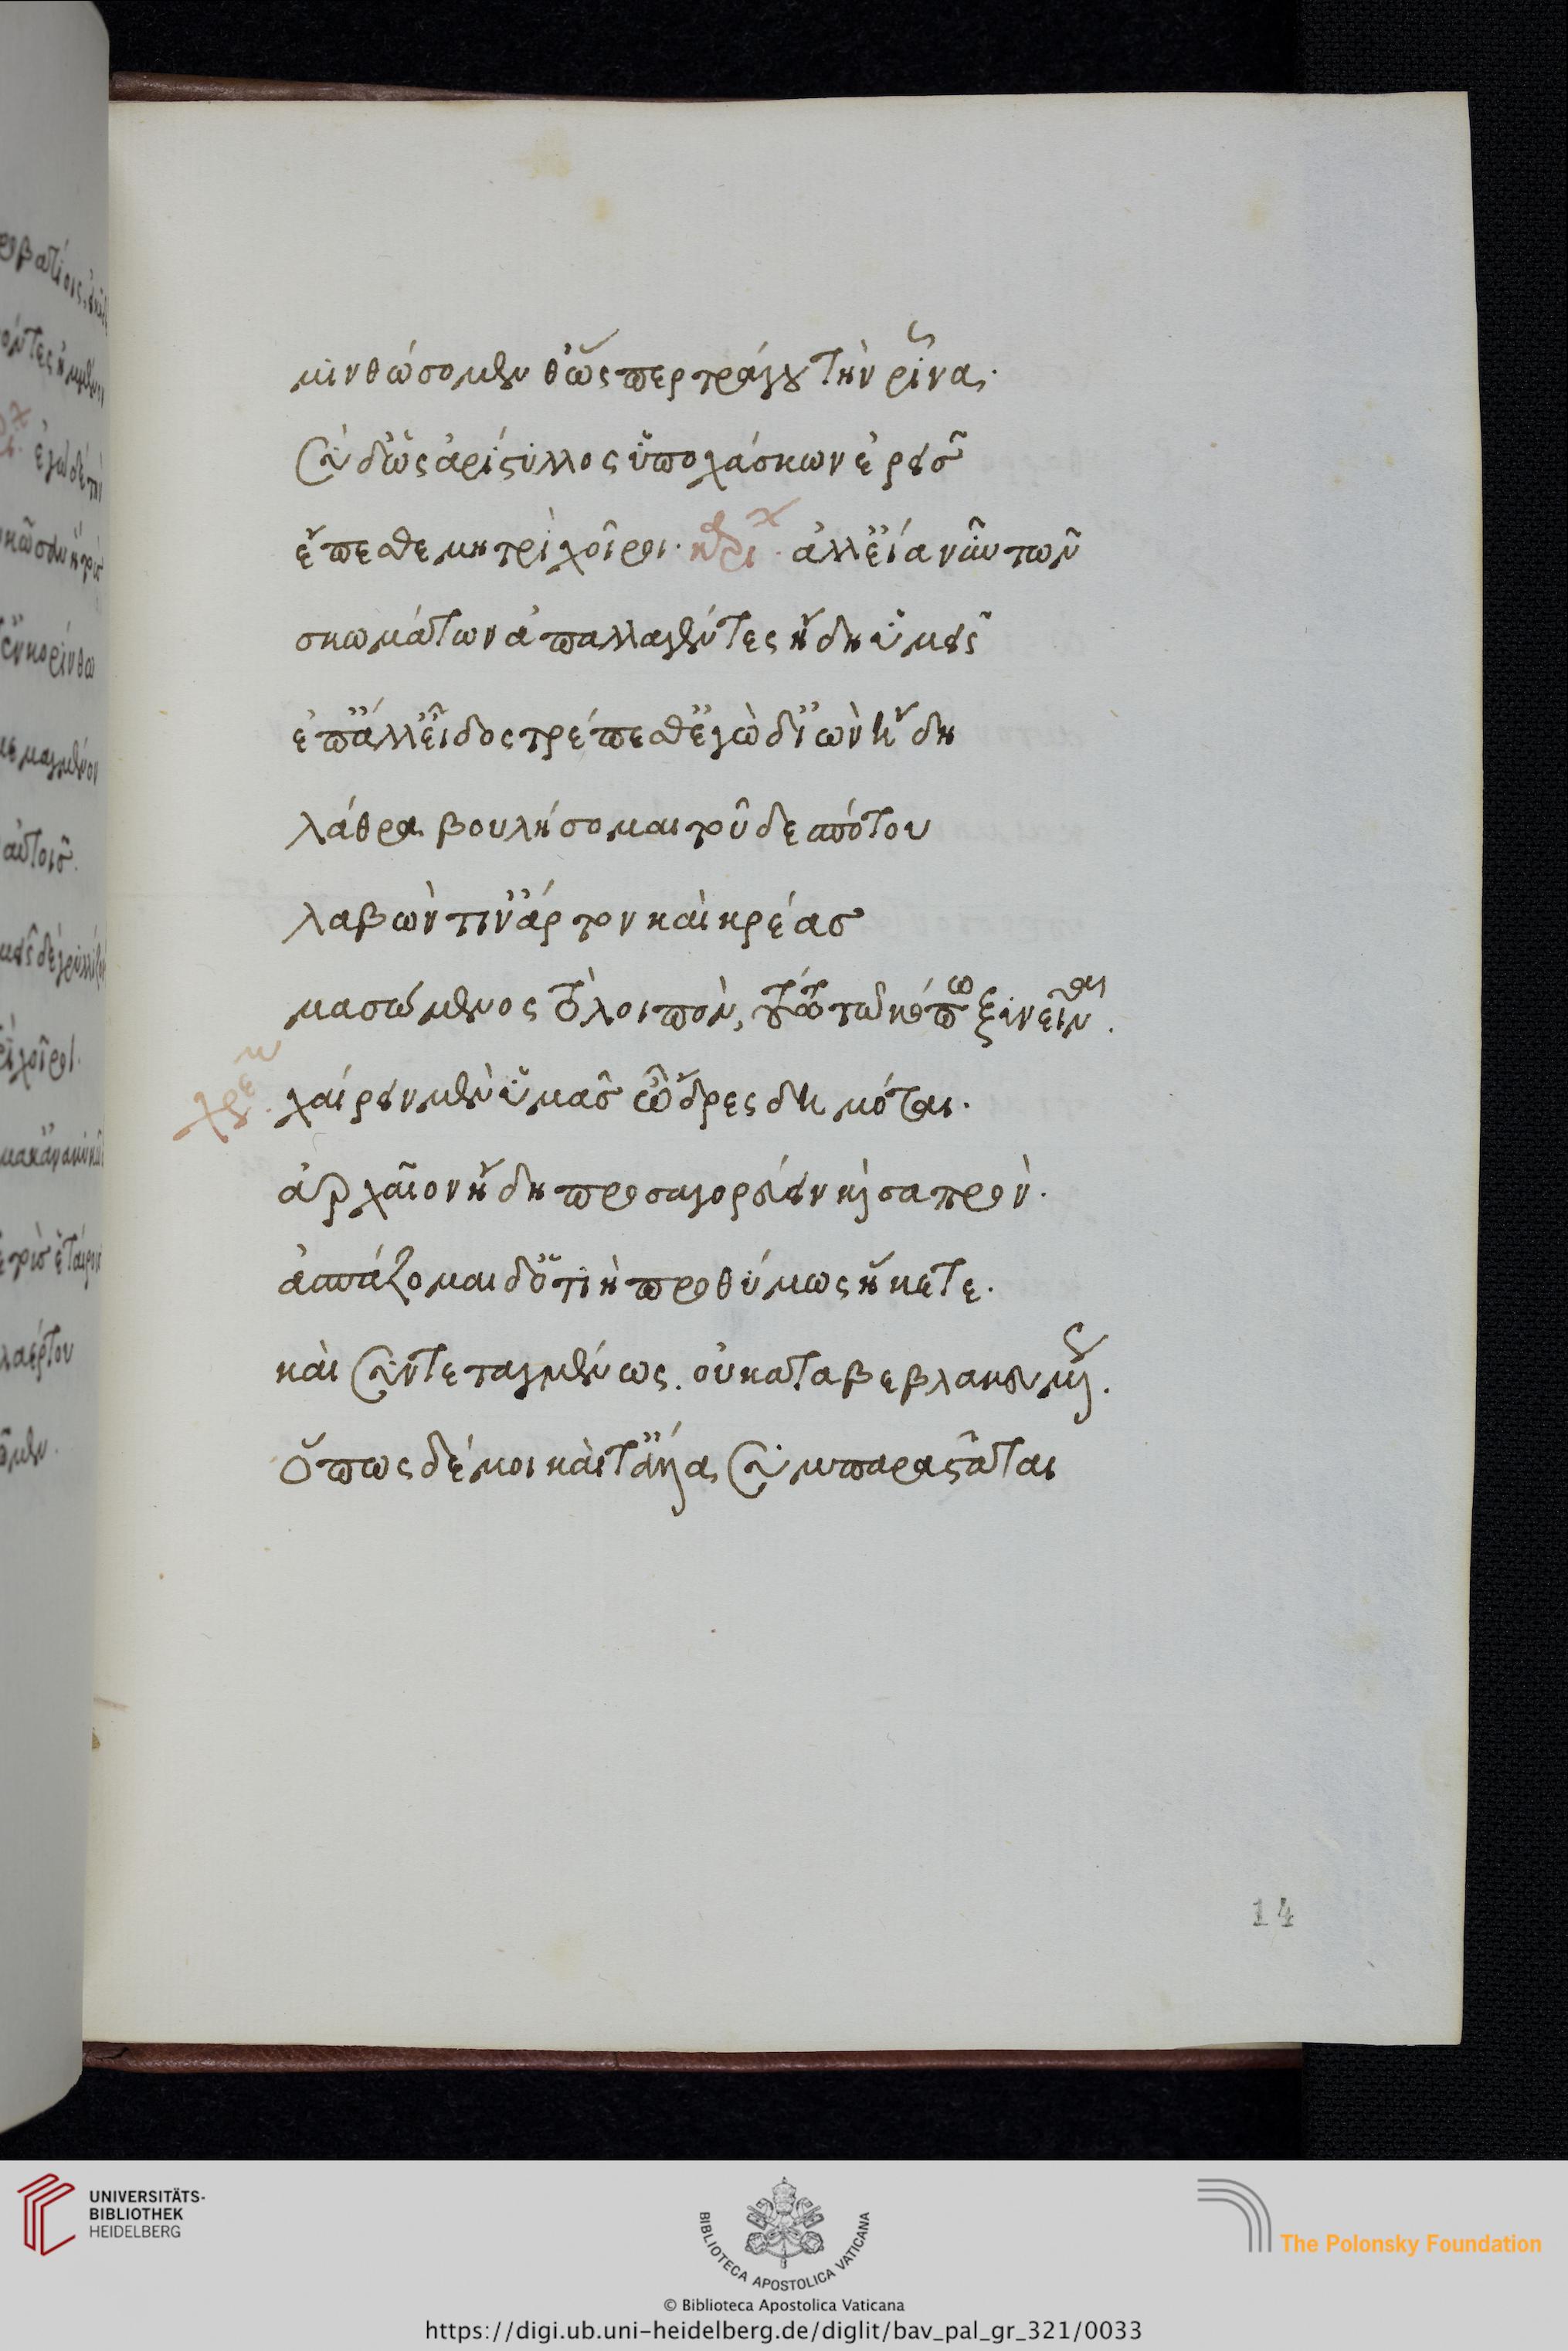 μινθώσομεν θ' ὥσπερ τράγου τὴν ῥῖνας·
σὺ δ' ὡς ἀρίστυλλος ὑποχάσκων ἐρεῖς
ἕπεσθε μητρὶ χοῖροι· ἀλλ' εἷα νῦν τῶν
σκωμάτων ἀπαλλαγέντες ἤδη ὑμεῖς
ἐπ' ἄλλ' εἶδος τρέπεσθ' ἐγὼ δ' ἰὼν ἤδη
λάθρα βουλήσομαι τοῦ δεσπότου
λαβών τιν' ἄρτον καὶ κρέας
μασώμενος τὸ λοιπὸν, οὕτω τῷ κόπω ξυνεῖναι.
χρε. χαίρειν μὲν ὑμᾶς ὦνδρες δημόται·
ἀρχαῖον ἤδη προσαγορεύειν καὶ σαπρόν·
ἀσπάζομαι δ' ὅτιὴ προθύμως ἥκετε·
καὶ συντεταγμένως. οὐ καταβεβλακευμένως.
ὅπως δέ μοι καὶ τἄλλα συμπαραστᾶται
14
UNIVERSITÄTS-
BIBLIOTHEK
HEIDELBERG
BIBLIOTECA APOSTOLICA VATICANA
The Polonsky Foundation
© Biblioteca Apostolica Vaticana
https://digi.ub.uni-heidelberg.de/diglit/bav_pal_gr_321/0033